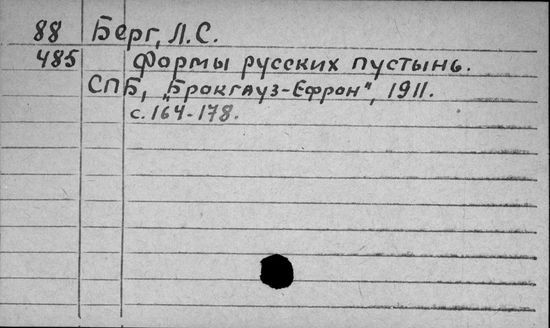 88 Берг, Л.С.
485 Формы русских пустынь.
СПБ, „Брокгауз-Ефрон", 1911.
с.164-178.